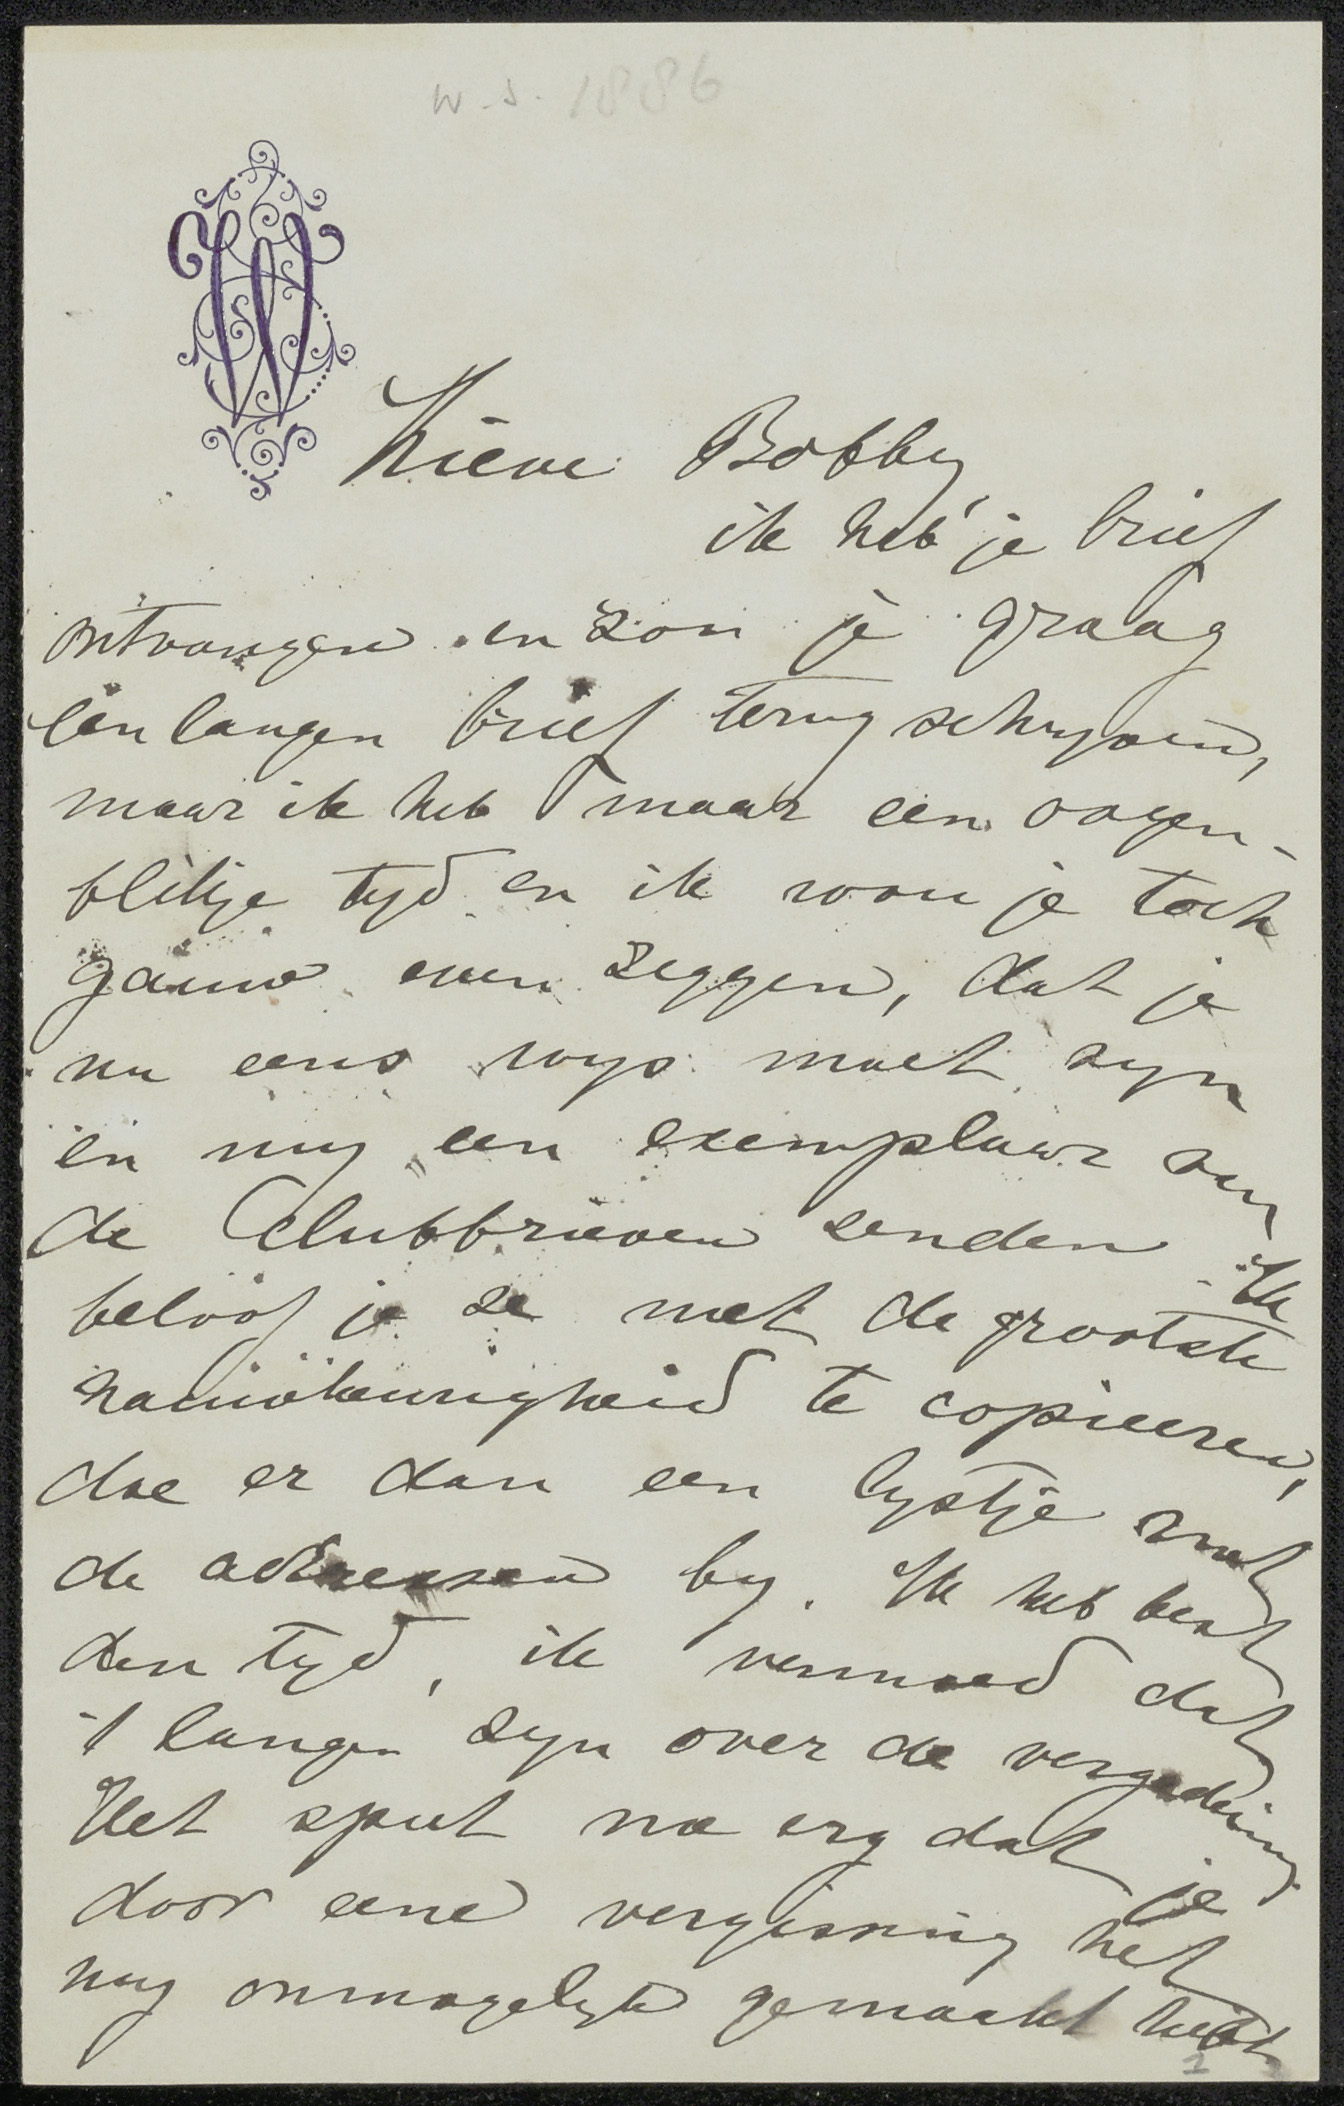 W.S. 1886
W
Lieve Bobby,
ik heb je brief
ontvangen en zou je graag
een langen brief terug schryven,
maar ik heb maar een oogen-
blikje tyd en ik wou je toch
gauw even zeggen, dat je
nu eens wys moet zyn
en my een exemplaar van
de Clubbrieven zenden. Ik
beloof je ze met de grootste
nauwkeurigheid te copieeren,
doe er dan een lystje met
de adressen by. Ik heb best
den tyd, ik vermoed dat
't langer zyn over de vergadering.
Het spyt me erg dat je
door eene vergissing het
my onmogelyk gemaakt hebt
1